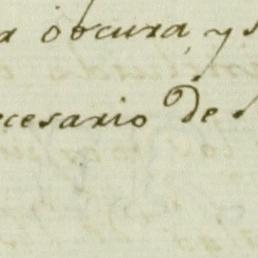 obcura, y
cesario de